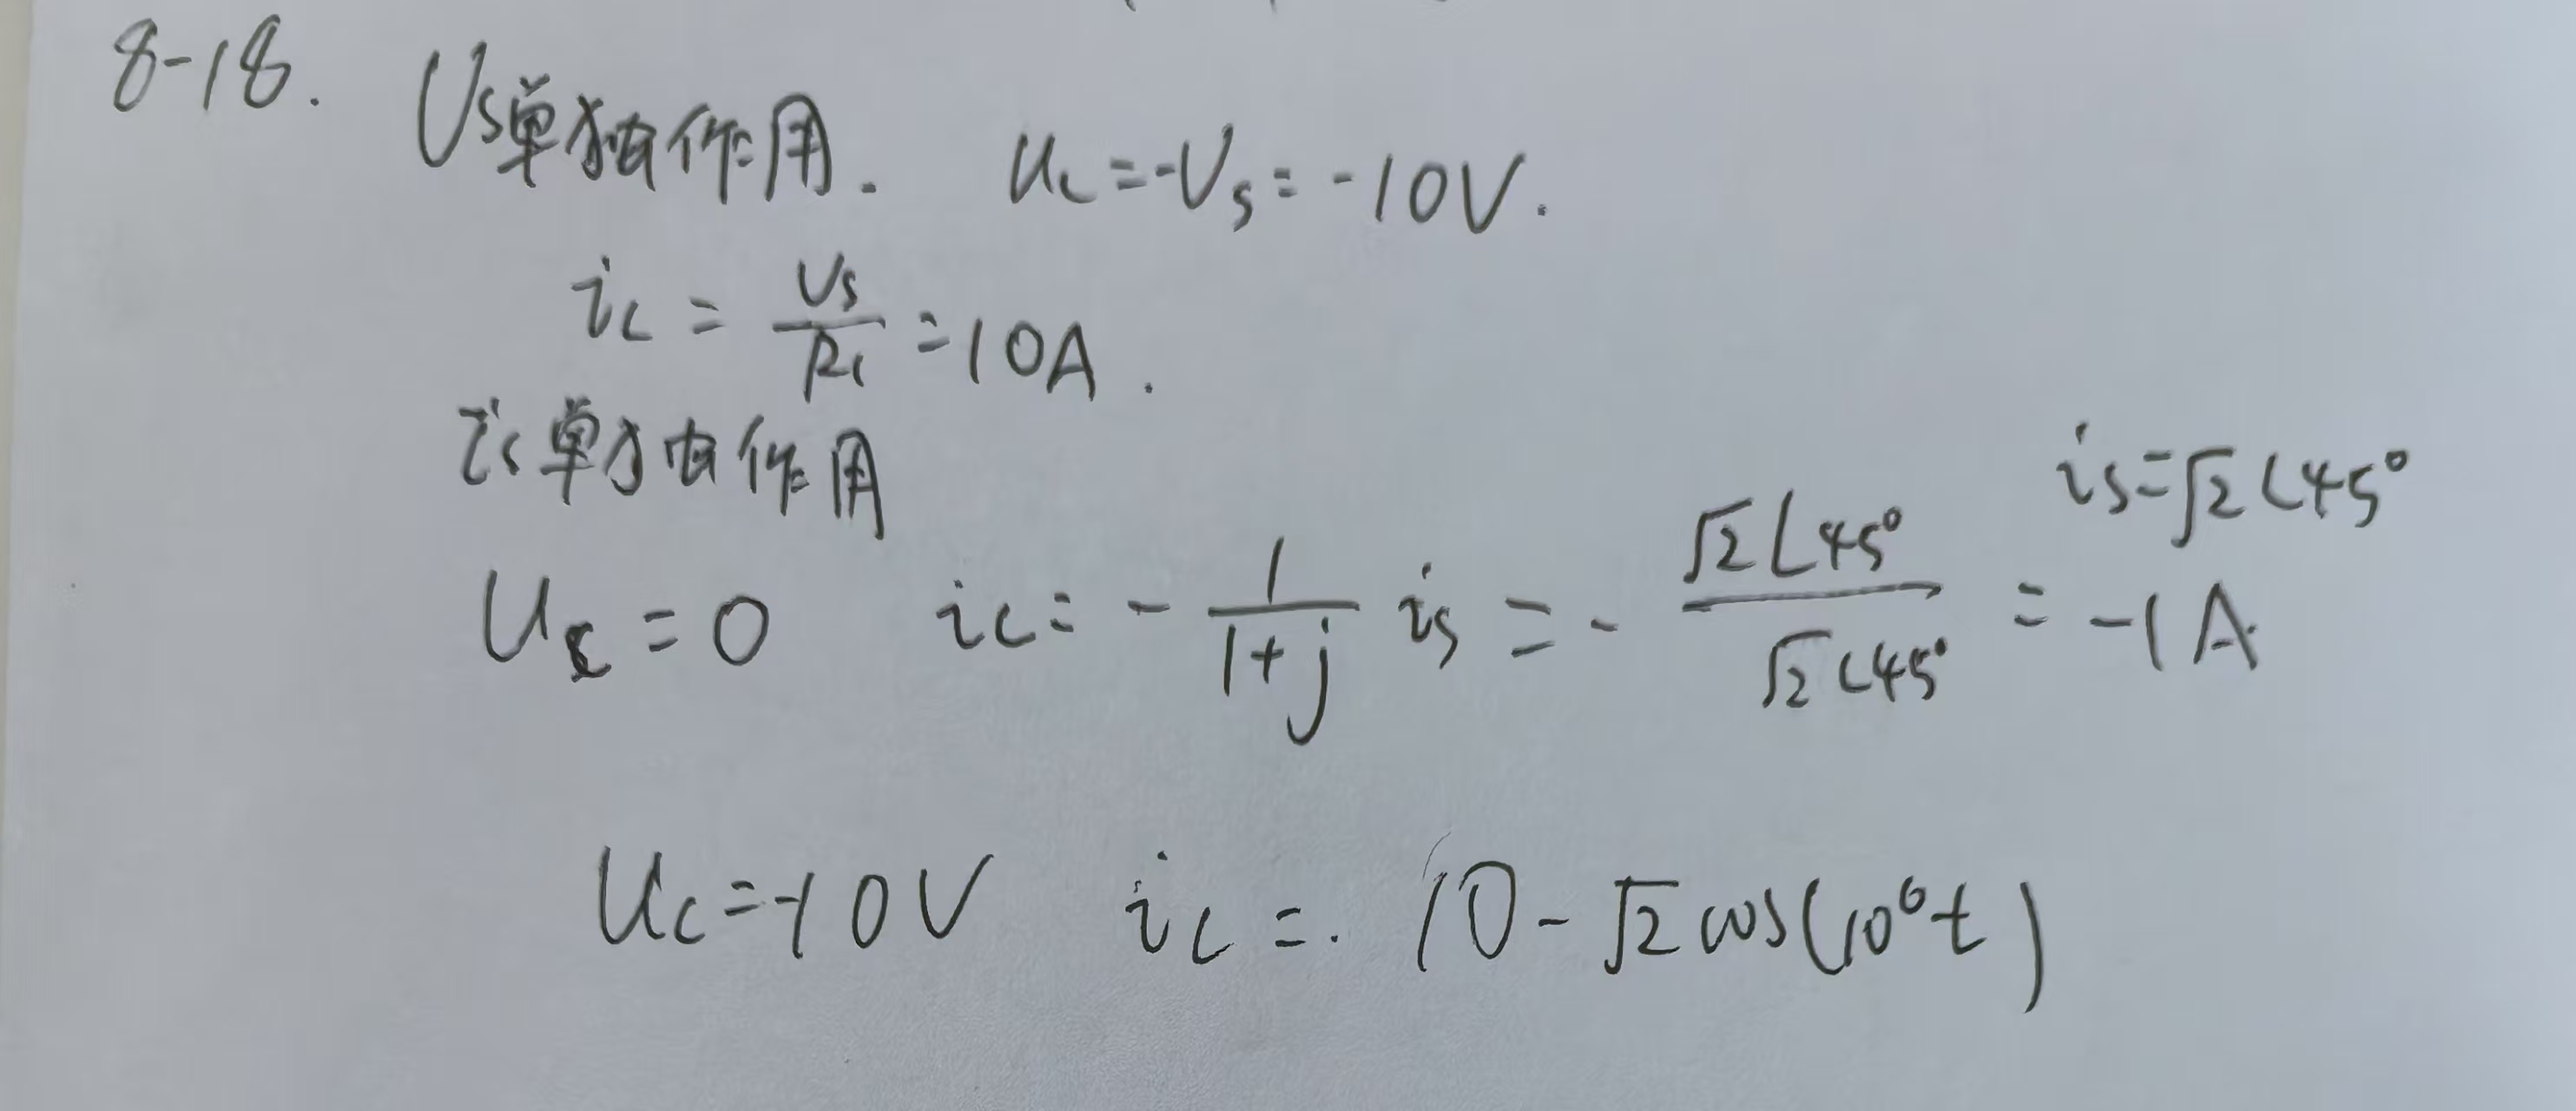 8-18. Us单独作用. uc=-Us=-10V.
iL = Us/R1 =10A.
is单独作用
is=√2∠45°
uc=0 iL= - 1/(1+j) is = - √2∠45°/√2∠45° = -1A
uc=-10V iL= 10-√2cos(10⁶t)